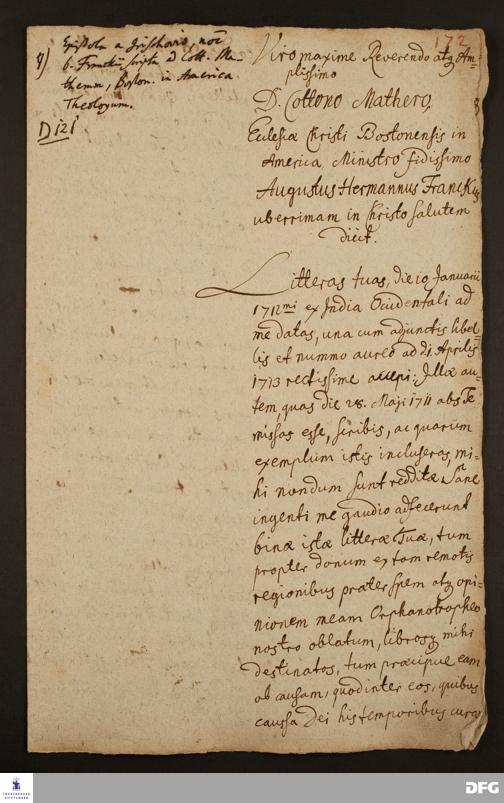 172
8)
Epistola a Grischovio, noīe
b. Franckii scripta ad Cott. Ma-
therum, Boston. in America
Theologum.
D 121
Viro maxime Reverendo atq Am-
plissimo
D. Cottono Mathero,
Ecclesiæ Christi Bostonensis in
America Ministro fidissimo
Augustus Hermannus Franckius
uberrimam in Christo salutem
dicit.
Litteras tuas, die 10 Januarii
1712mi ex India Occidentali ad
me datas, una cum adjunctis libel-
lis et nummo aureo ad d. 1. Aprilis
1713 rectissime accepi: Illæ au-
tem, quas die 28. Maji 1711 abs Te
missas esse, scribis, ac quarum
exemplum istis incluseras, mi-
hi nondum sunt redditæ. Sane
ingenti me gaudio adfecerunt
binæ istæ litteræ Tuæ, tum
propter donum ex tam remotis
regionibus præter spem atq opi-
nionem meam Orphanotropheo
nostro oblatum, librosq mihi
destinatos, tum præcipue eam
ob causam, quod inter eos, quibus
caussa Dei his temporibus curæ
FRANCKESCHE STIFTUNGEN
DFG